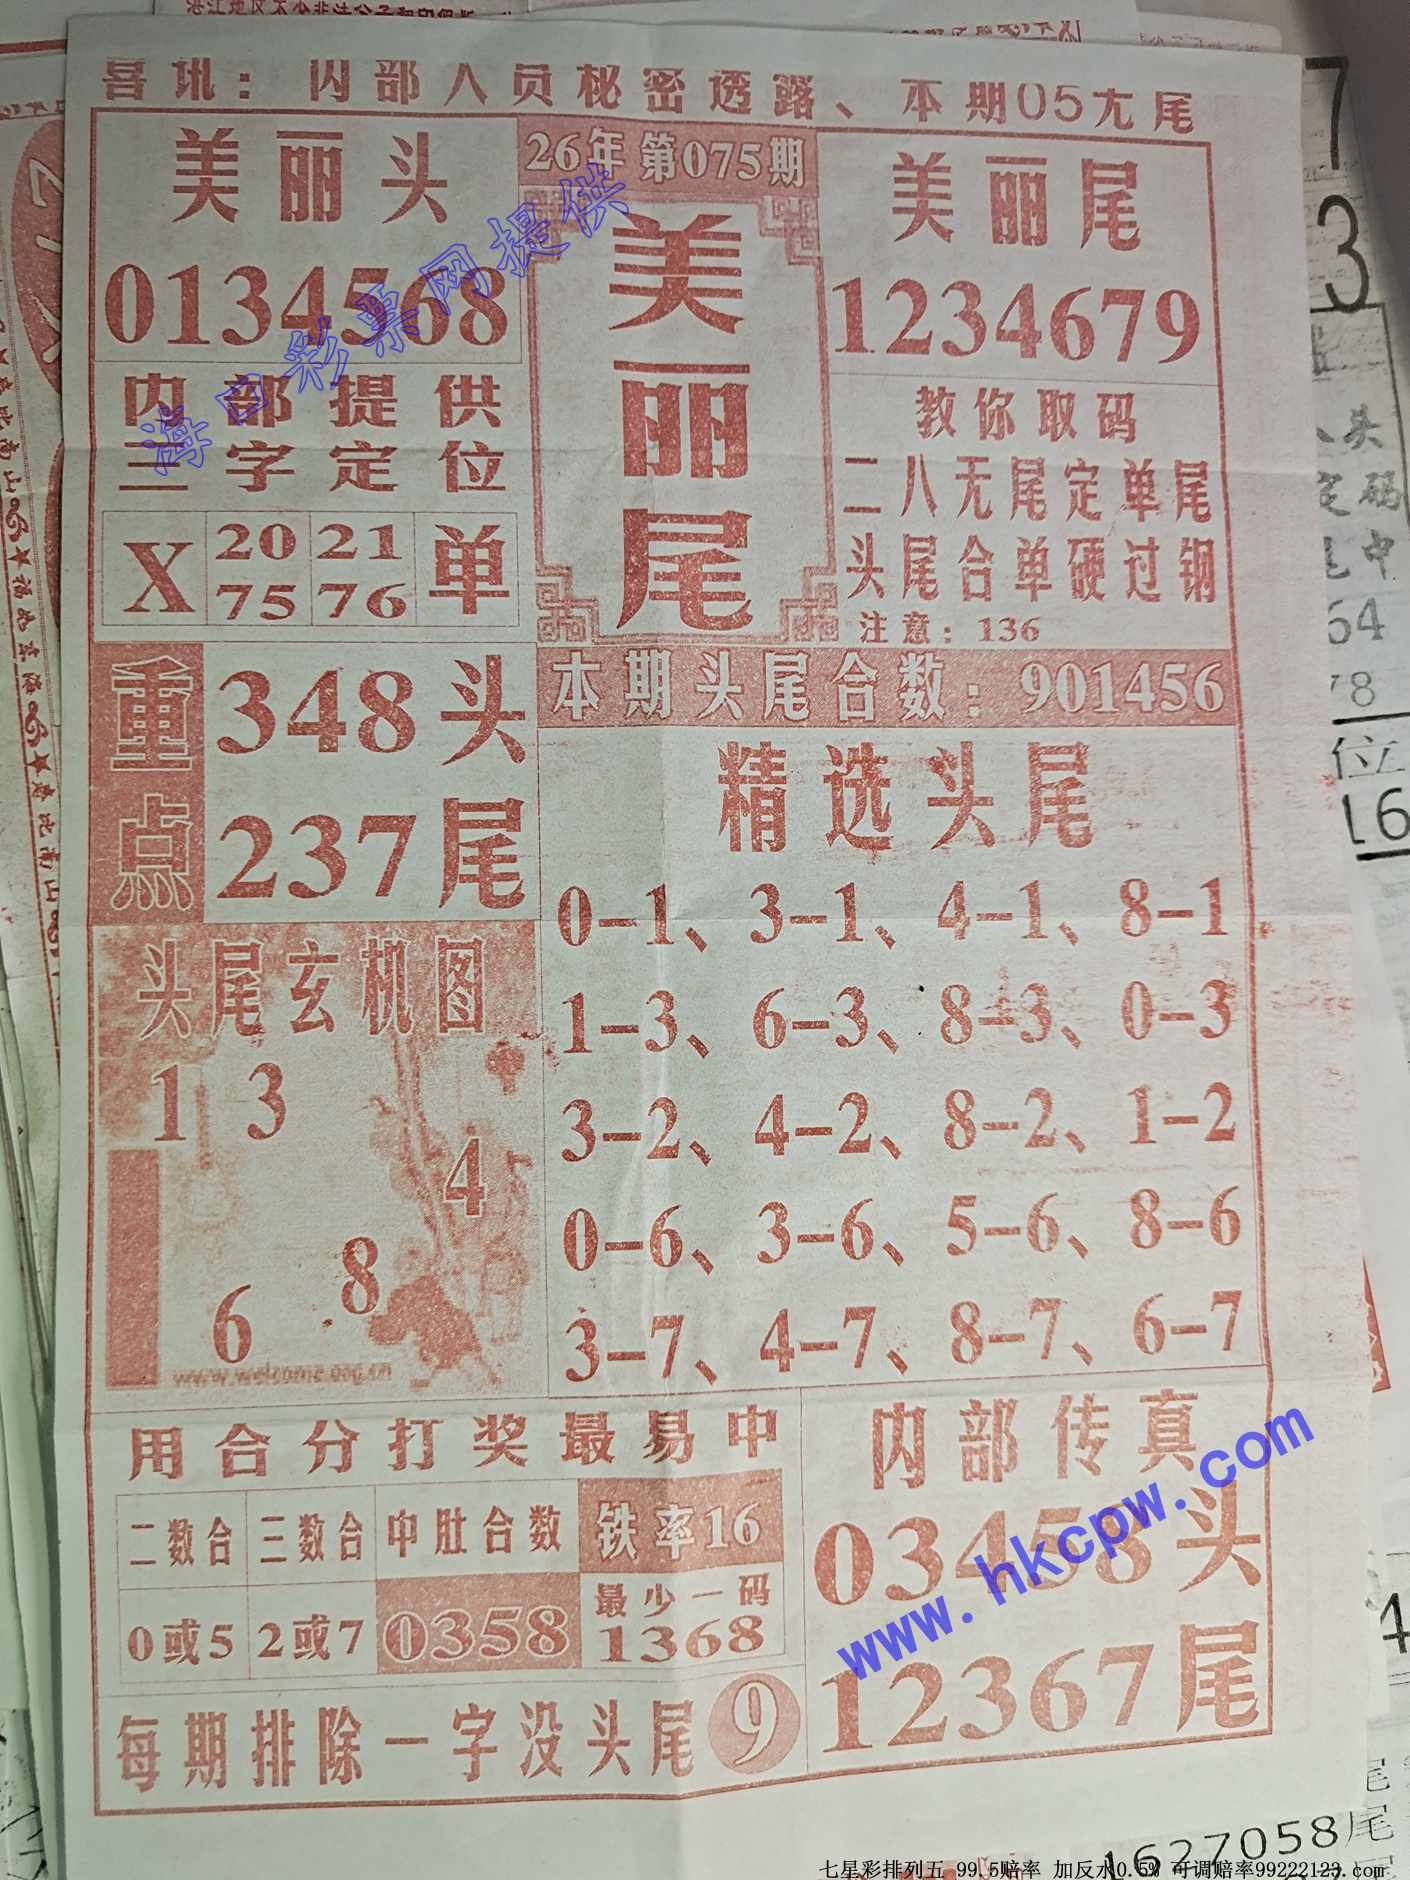 喜讯：内部人员秘密透露、本期05无尾
美丽头
0134568
26年第075期
美丽尾
美丽尾
1234679
内部提供
三字定位
X 20 21 单
75 76
教你取码
二八无尾定单尾
头尾合单硬过钢
注意：136
重点
348头
237尾
本期头尾合数：901456
精选头尾
0-1、3-1、4-1、8-1
1-3、6-3、8-3、0-3
3-2、4-2、8-2、1-2
0-6、3-6、5-6、8-6
3-7、4-7、8-7、6-7
头尾玄机图
1 3
4
8
6
用合分打奖最易中
二数合 三数合 中肚合数 铁率16
0或5 2或7 0358 最少一码
1368
每期排除一字没头尾 9
内部传真
03458头
12367尾
海口彩票网提供
www.hkcpw.com
7
3
头
码
中
64
78
位
16
4
1627058尾
七星彩排列五 99.5赔率 加反水0.5% 可调赔率99222123.com